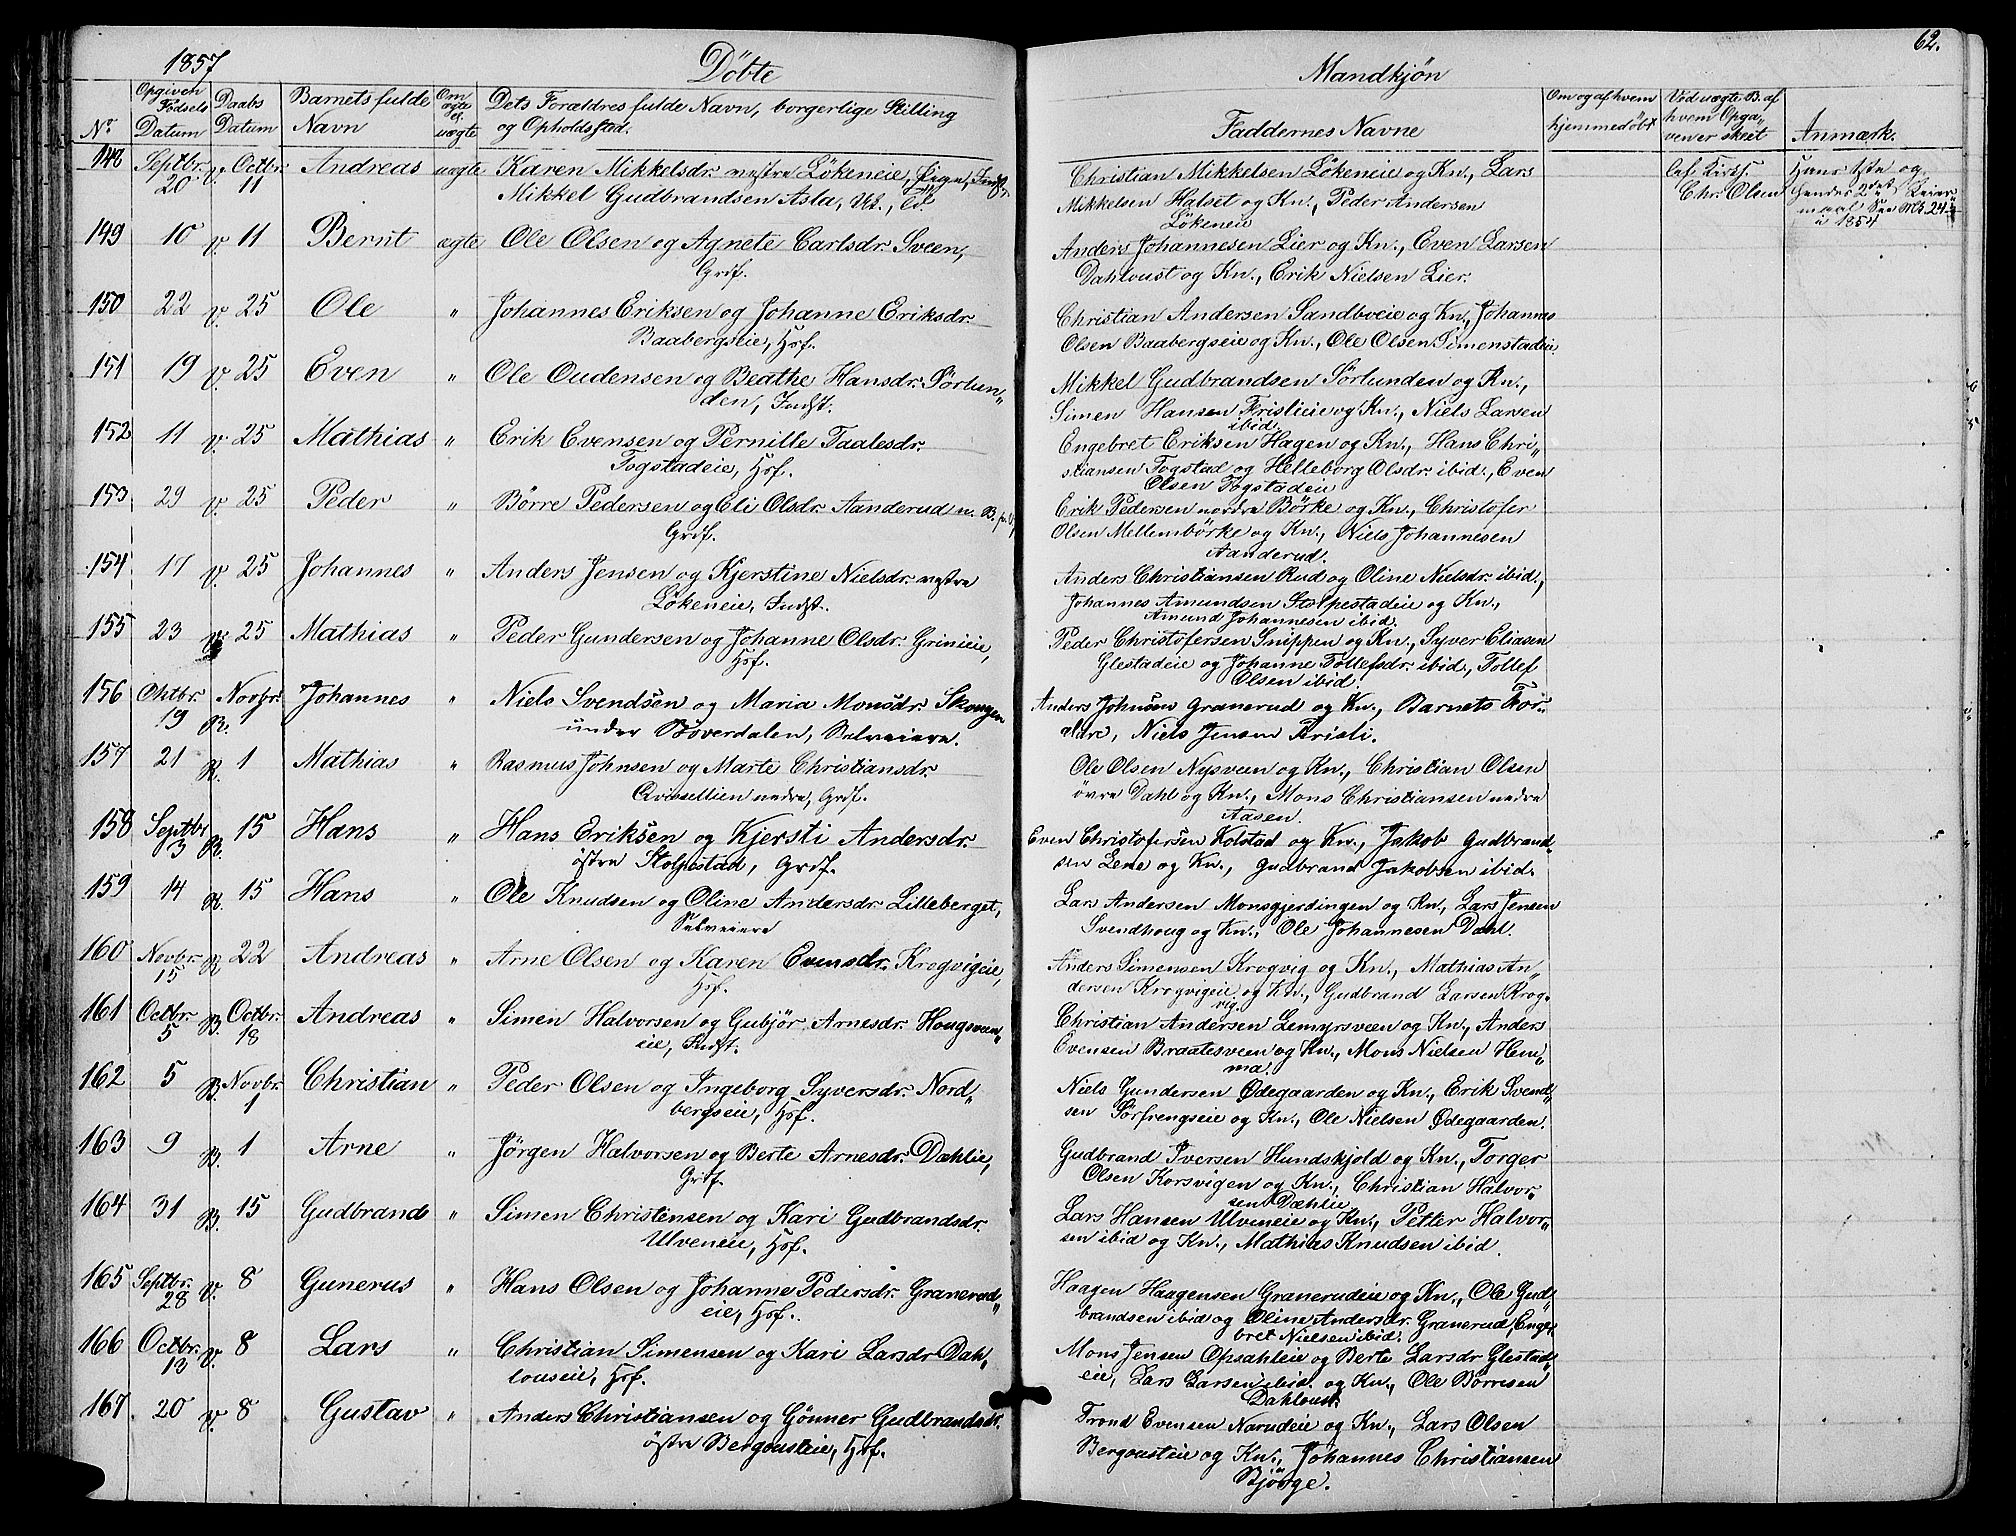 1857
Döbte
Mandkjön
62.
No.
Opgiven Födsels Datum
Daabs Datum
Barnets fulde Navn
Om ægte el. uægte
Dets Forældres fulde Navn, borgerlige Stilling og Opholdssted.
Faddernes Navne
Om og af hvem hjemmedöbt
Ved uægte B. af hvem Opgaven er skeet
Anmærk.
148 Septbr. 20 V. Octbr. 11 Andreas uægte Karen Mikkelsdr. vestre Lökeneie, Pige, Indst.
Mikkel Gudbrandsen Asla,
Christian Mikkelsen Lökeneie og Kn., Lars
Mikkelsen Halset og Kn., Peder Andersen
Lökeneie
Chr. Olsen
Hans 1ste og
hendes 2det Leier
maal See No. 24
i 1854
149 10 V. 11 Bernt ægte Ole Olsen og Agnete Carlsdr. Sveen,
Grdf.
Anders Johannesen Lier og Kn., Even Larsen
Dahloust og Kn., Erik Nielsen Lier.
150 22 V. 25 Ole " Johannes Eriksen og Johanne Eriksdr.
Baabergseie, Hsf.
Christian Andersen Sandboeie og Kn., Johannes
Olsen Baabergseie og Kn., Ole Olsen Simenstadeie.
151 19 V. 25 Even " Ole Oudensen og Beathe Hansdr. Sörlun„
den, Indst.
Mikkel Gudbrandsen Sörlunden og Kn.,
Simen Hansen Fristieie og Kn., Niels Larsen
ibid.
152 11 V. 25 Mathias " Erik Evensen og Pernille Taalesdr.
Togstadeie, Hsf.
Engebret Eriksen Hagen og Kn., Hans Chri„
stiansen Togstad og Helleborg Olsdr. ibid., Even
Olsen Togstadeie
153 29 V. 25 Peder " Börre Pedersen og Eli Olsdr. Aanderud
Grdf.
Erik Pedersen nordre Börke og Kn., Christofer
Olsen Mellembörke og Kn., Niels Johannesen
Aanderud.
154 17 V. 25 Johannes " Anders Jensen og Kjerstine Nielsdr. vestre
Lökeneie, Indst.
Anders Christiansen Rud og Oline Nielsdr. ibid.,
Johannes Amundsen Stolpestadeie og Kn.,
Amund Johannesen ibid.
155 23 V. 25 Mathias " Peder Gundersen og Johanne Olsdr. Grinieie,
Hsf.
Peder Christofersen Snippen og Kn., Syver Eliasen
Glestadeie og Johanne Tollefsdr. ibid., Tollef
Olsen ibid.
156 Oktbr. 19 R. Novbr. 1 Johannes " Niels Svendsen og Maria Monsdr. Skougen
under Böverdalen, Selveiere.
Anders Johnsen Granerud og Kn., Barnets For„
ældre, Niels Jensen Fristi.
157 21 R. 1 Mathias " Rasmus Johnsen og Marte Christiansdr.
Qvisellien nedre, Grdf.
Ole Olsen Nysveen og Kn., Christian Olsen
övre Dahl og Kn., Mons Christiansen nedre
Aasen.
158 Septbr. 3 R. 15 Hans " Hans Eriksen og Kjersti Andersdr.
östre Stolpestad, Grdf.
Even Christofersen Kolstad og Kn., Jakob Gudbrand„
sen Lene og Kn., Gudbrand Jakobsen ibid.
159 14 R. 15 Hans " Ole Knudsen og Oline Andersdr. Lilleberget,
Selveiere
Lars Andersen Monsgjerdingen og Kn., Lars Jensen
Svendhoug og Kn., Ole Johannesen Dahl.
160 Novbr. 15 R. 22 Andreas " Arne Olsen og Karen Evensdr. Krogvigeie,
Hsf.
Anders Simensen Krogvig og Kn., Mathias An„
dersen Krogvigeie og Kn., Gudbrand Larsen Krog„
vig.
161 Octbr. 5 B. Octbr. 18 Andreas " Simen Halvorsen og Gubjör Arnesdr. Hougsveen„
eie, Indst.
Christian Andersen Lemyrsveen og Kn., Anders
Evensen Braatesveen og Kn., Mons Nielsen Hem„
ma.
162 5 B. Novbr. 1 Christian " Peder Olsen og Ingeborg Syversdr. Nord„
bergseie, Hsf.
Niels Gundersen Ødegaarden og Kn., Erik Svend„
sen Sörfrengseie og Kn., Ole Nielsen Ødegaarden.
163 9 B. 1 Arne " Jörgen Halvorsen og Berte Arnesdr. Dæhlie,
Grdf.
Gudbrand Iversen Hundskjold og Kn., Torger
Olsen Korsvigen og Kn., Christian Halvor„
sen Dæhlie
164 31 B. 15 Gudbrand " Simen Christensen og Kari Gudbrandsdr.
Ulveneie, Hsf.
Lars Hansen Ulveneie og Kn., Petter Halvor„
sen ibid og Kn., Mathias Knudsen ibid.
165 Septbr. 28 V. 8 Gunerus " Hans Olsen og Johanne Pedersdr. Granerud„
eie, Hsf.
Haagen Haagensen Granerudeie og Kn., Ole Gud„
brandsen ibid og Oline Andersdr. Granerud, Enge„
bret Nielsen ibid.
166 Octbr. 13 V. 8 Lars " Christian Simensen og Kari Larsdr. Dah„
louseie, Hsf.
Mons Jensen Opsahleie og Berte Larsdr Glestad„
eie, Lars Larsen ibid. og Kn., Ole Börresen
Dahloust.
167 20 V. 8 Gustav " Anders Christiansen og Gönner Gudbrandsdr.
östre Bergousteie, Hsf.
Trond Evensen Narudeie og Kn., Lars Olsen
Bergousteie og Kn., Johannes Christiansen
Bjørge.